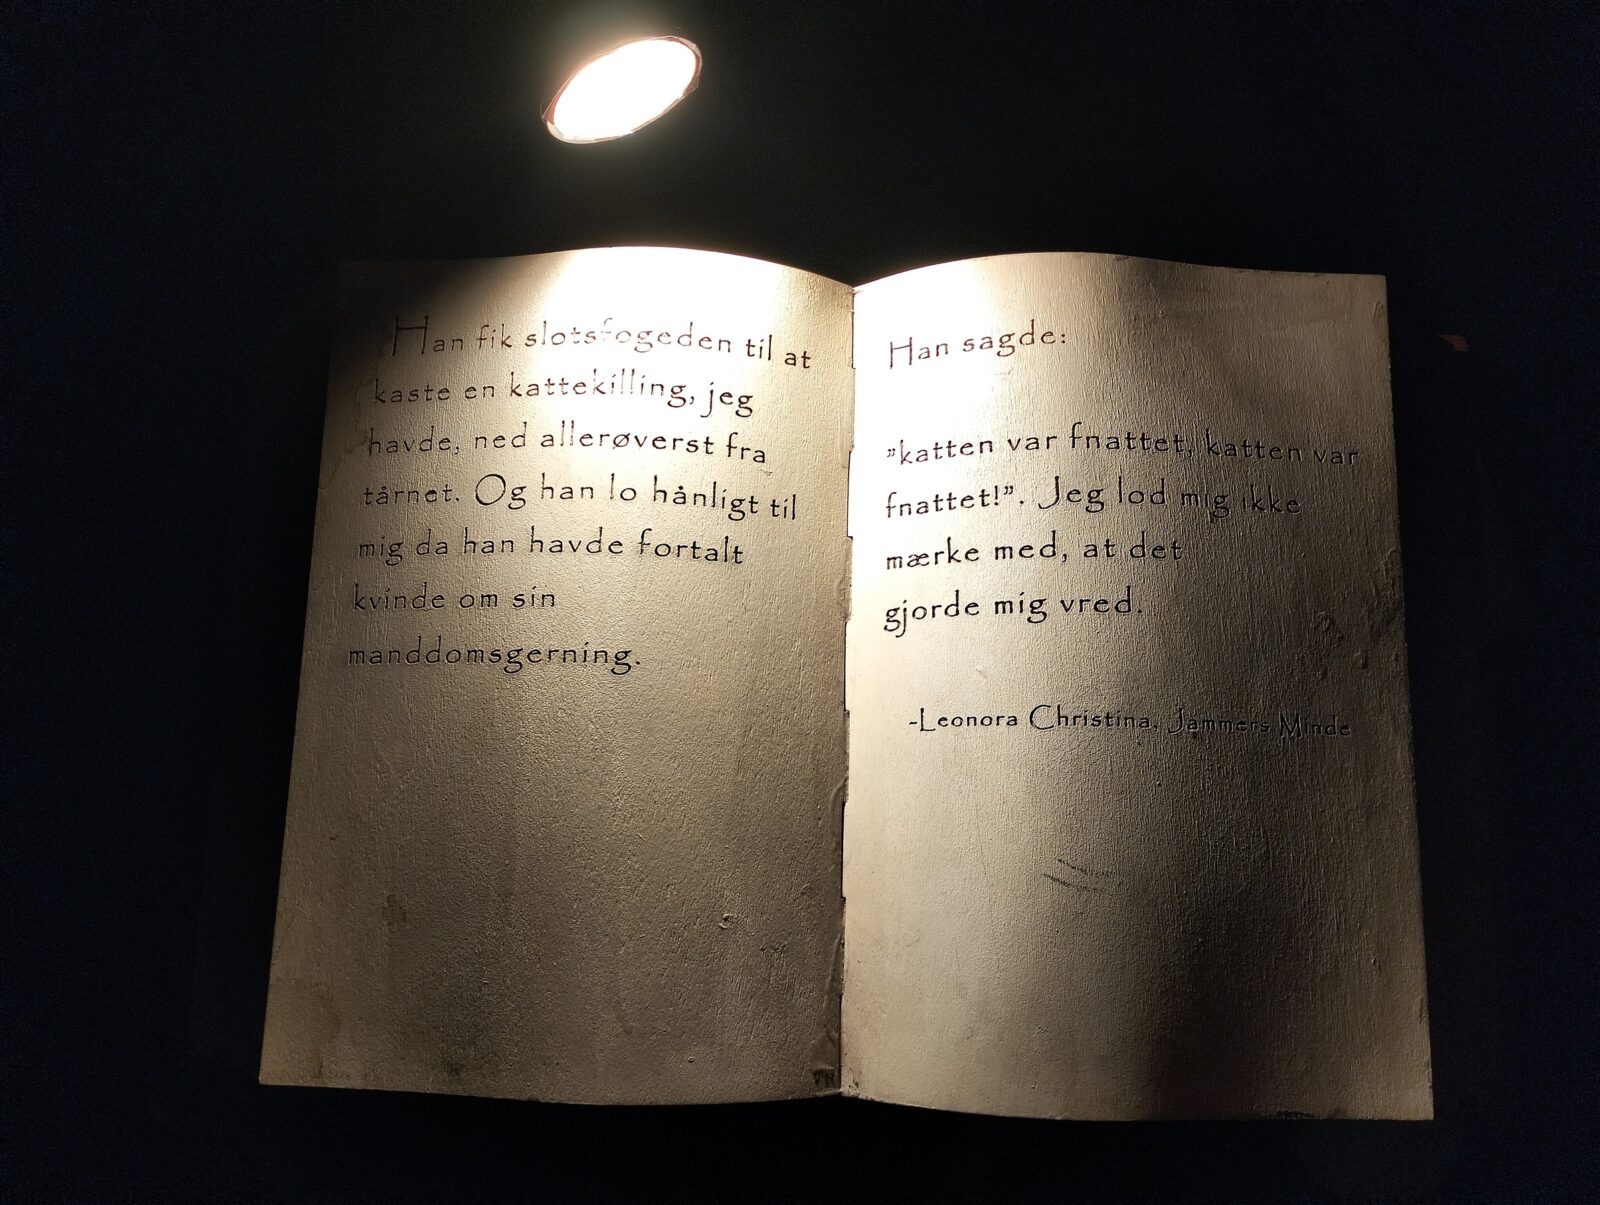 Han fik slotsfogeden til at
kaste en kattekilling, jeg
havde, ned allerøverst fra
tårnet. Og han lo hånligt til
mig da han havde fortalt
kvinde om sin
manddomsgerning.
Han sagde:
"katten var fnattet, katten var
fnattet!". Jeg lod mig ikke
mærke med, at det
gjorde mig vred.
-Leonora Christina, Jammers Minde